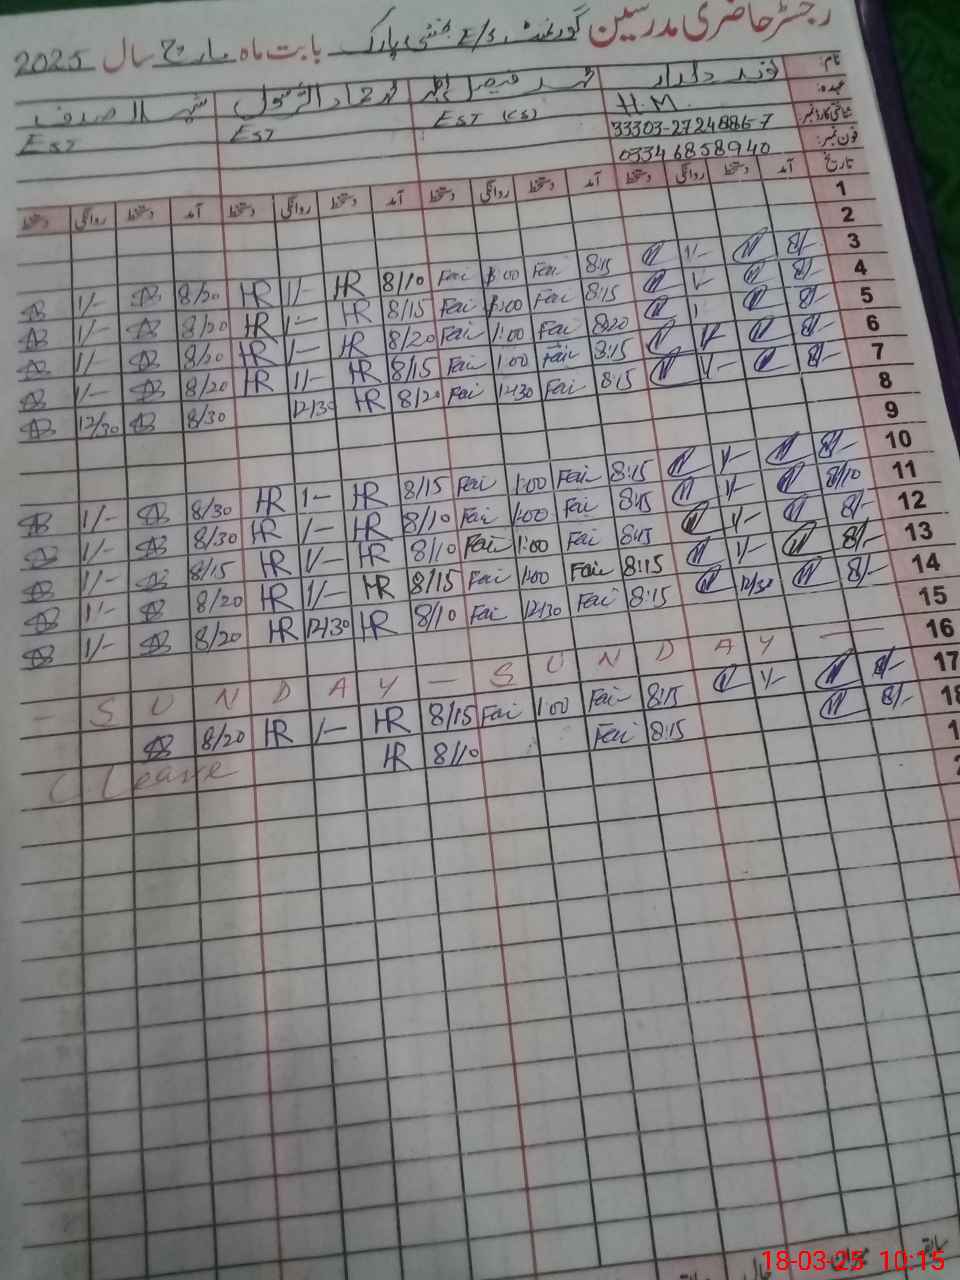 رجسٹر حاضری مدرسین گورنمنٹ E/S بخشی پارک بابت ماہ مارچ سال 2025
نام:
عہدہ: H.M. EST (CS) EST EST
شناختی کارڈ نمبر 33303-2724886-7
فون نمبر: 03346858940
تاریخ آمد دستخط روانگی دستخط آمد دستخط روانگی دستخط آمد دستخط روانگی دستخط آمد دستخط روانگی دستخط
1
2
3 8/- 1/- 8:15 Fai 1:00 Fai 8/10 HR 1/- HR 8/20 1/-
4 8/- 1/- 8:15 Fai 1:00 Fai 8/15 HR 1/- HR 8/20 1/-
5 8/- 1 8:20 Fai 1:00 Fai 8/20 HR 1/- HR 8/20 1/-
6 8/- 1/- 8:15 Fai 1:00 Fai 8/15 HR 1/- HR 8/20 1/-
7 8/- 1/- 8:15 Fai 12:30 Fai 8/20 HR 12/30 8/30 12/30
8
9
10 8/- 1/- 8:15 Fai 1:00 Fai 8/15 HR 1/- HR 8/30 1/-
11 8/10 1/- 8:15 Fai 1:00 Fai 8/10 HR 1/- HR 8/30 1/-
12 8/- 1/- 8:15 Fai 1:00 Fai 8/10 HR 1/- HR 8/15 1/-
13 8/- 1/- 8:15 Fai 1:00 Fai 8/15 HR 1/- HR 8/20 1/-
14 8/- 12/30 8:15 Fai 12:30 Fai 8/10 HR 12/30 HR 8/20 1/-
15
16 — S U N D A Y — S U N D A Y —
17 8/- 1/- 8:15 Fai 1:00 Fai 8/15 HR 1/- HR 8/20
18 8/- 8:15 Fai 8/10 HR C. Leave
18-03-25 10:15